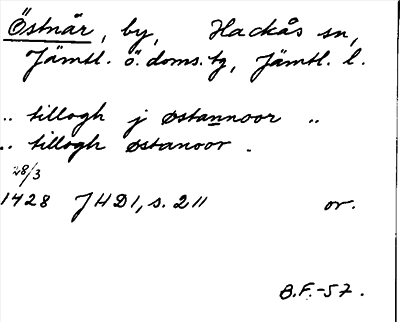 Östnår, by, Hackås sn,
Jämtl. ö. doms. tg, Jämtl. l.
.. tillogh j østannoor ..
.. tillogh østanoor .
28/3
1428 JHD1, s. 211 or.
B.F.-57.